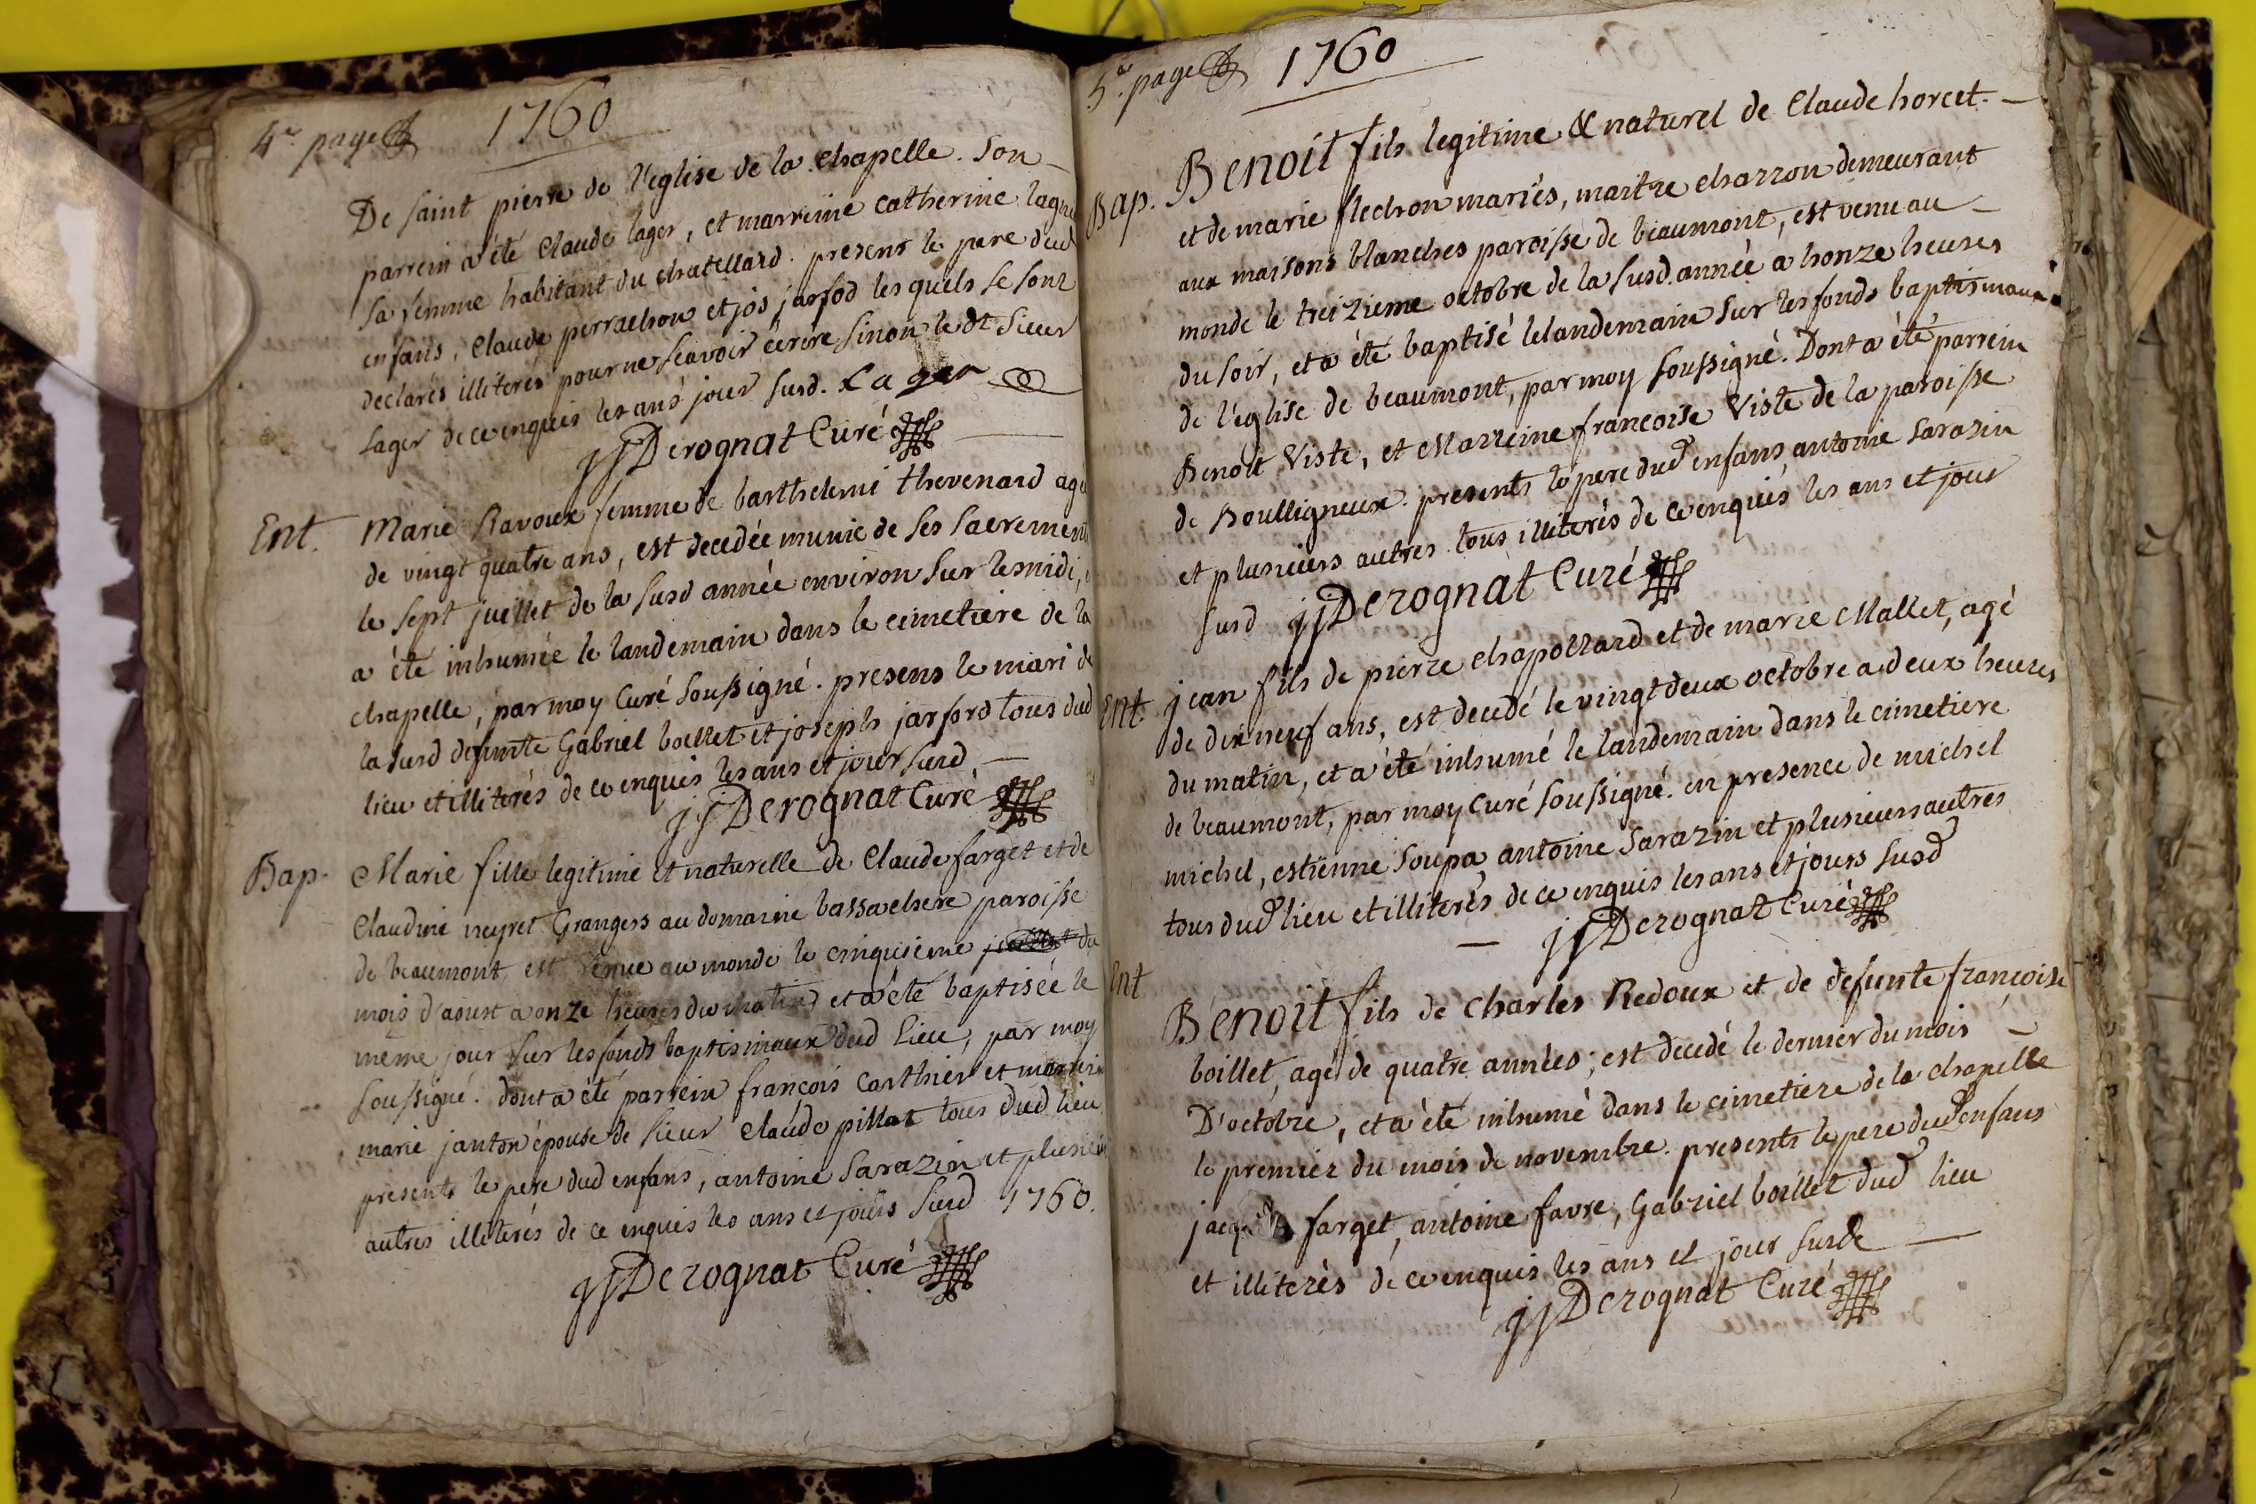 4e. page 1760
De saint pierre de l'eglise de la chapelle. Son
parrein a été Claude lager, et marreine catherine
sa femme habitant du chatellard. presens le pere dud
enfans, Claude perrachon et jos jarfod lesquels se sont
declarés illiterés pour ne scavoir écrire sinon le dt Sieur
Lager de ce enquis les ans jour susd. Lager
jjDerognat Curé
Ent. Marie Ravoux femme de barthelemi thevenard agé
de vingt quatre ans, est decedée munie de ses sacremens
le sept juillet de la susd année environ sur les midi,
a été inhumée le landemain dans le cimetiere de la
chapelle, par moy Curé soussigné. presens le mari de
la susd defunte Gabriel boillet et joseph jarford tous dud
lieu et illiterés de ce enquis les ans et jour susd
jjDerognat Curé
Bap. Marie fille legitime et naturelle de Claude farget et de
Claudine neyret Grangers au domaine bassachere paroisse
de beaumont est venue au monde le cinquieme du
mois d'aoust a onze heures du matin et a été baptisée le
même jour sur les fonds baptismaux dud lieu, par moy
soussigné. dont a été parrein françois carthier et marrein
marie janton épouse de sieur Claude pillat tous dud lieu
presents le pere dud enfans, antoine Sarazin et plusieurs
autres illiterés de ce enquis les ans et jours susd 1760.
jjDerognat Curé
5e. page 1760
Bap. Benoit fils legitime & naturel de Claude horcet.
et de marie flechon mariés, maitre charron demeurant
aux maisons blanches paroisse de beaumont, est venu au
monde le treizieme octobre de la susd. année a honze heures
du soir, et a été baptisé le landemain sur les fonds baptismaux
de l'église de beaumont, par moy soussigné. Dont a été parrein
Benoit Viste, et Marreine francoise Viste de la paroisse
de Boulligneux. presents le pere dud enfans antoine sarazin
et plusieurs autres tous illiterés de ce enquis les ans et jour
susd jjDerognat Curé
Ent. jean fils de pierre chapollard et de marie Mallet, agé
de dix neuf ans, est decedé le vingt deux octobre a deux heures
du matin, et a été inhumé le landemain dans le cimetiere
de beaumont, par moy curé soussigné. en presence de michel
michel, estienne soupa, antoine Sarazin et plusieurs autres
tous dud lieu et illiterés de ce enquis les ans et jours susd
jjDerognat Curé
Ent Benoit fils de Charles Redoux et de defunte françoise
boillet, agé de quatre années; est decedé le dernier du mois
D'octobre, et a été inhumé dans le cimetiere de la chapelle
le premier du mois de novembre. presents le pere dud enfans
farget, antoine favre, Gabriel boillet dud lieu
et illiterés de ce enquis les ans et jour susde
jjDerognat Curé